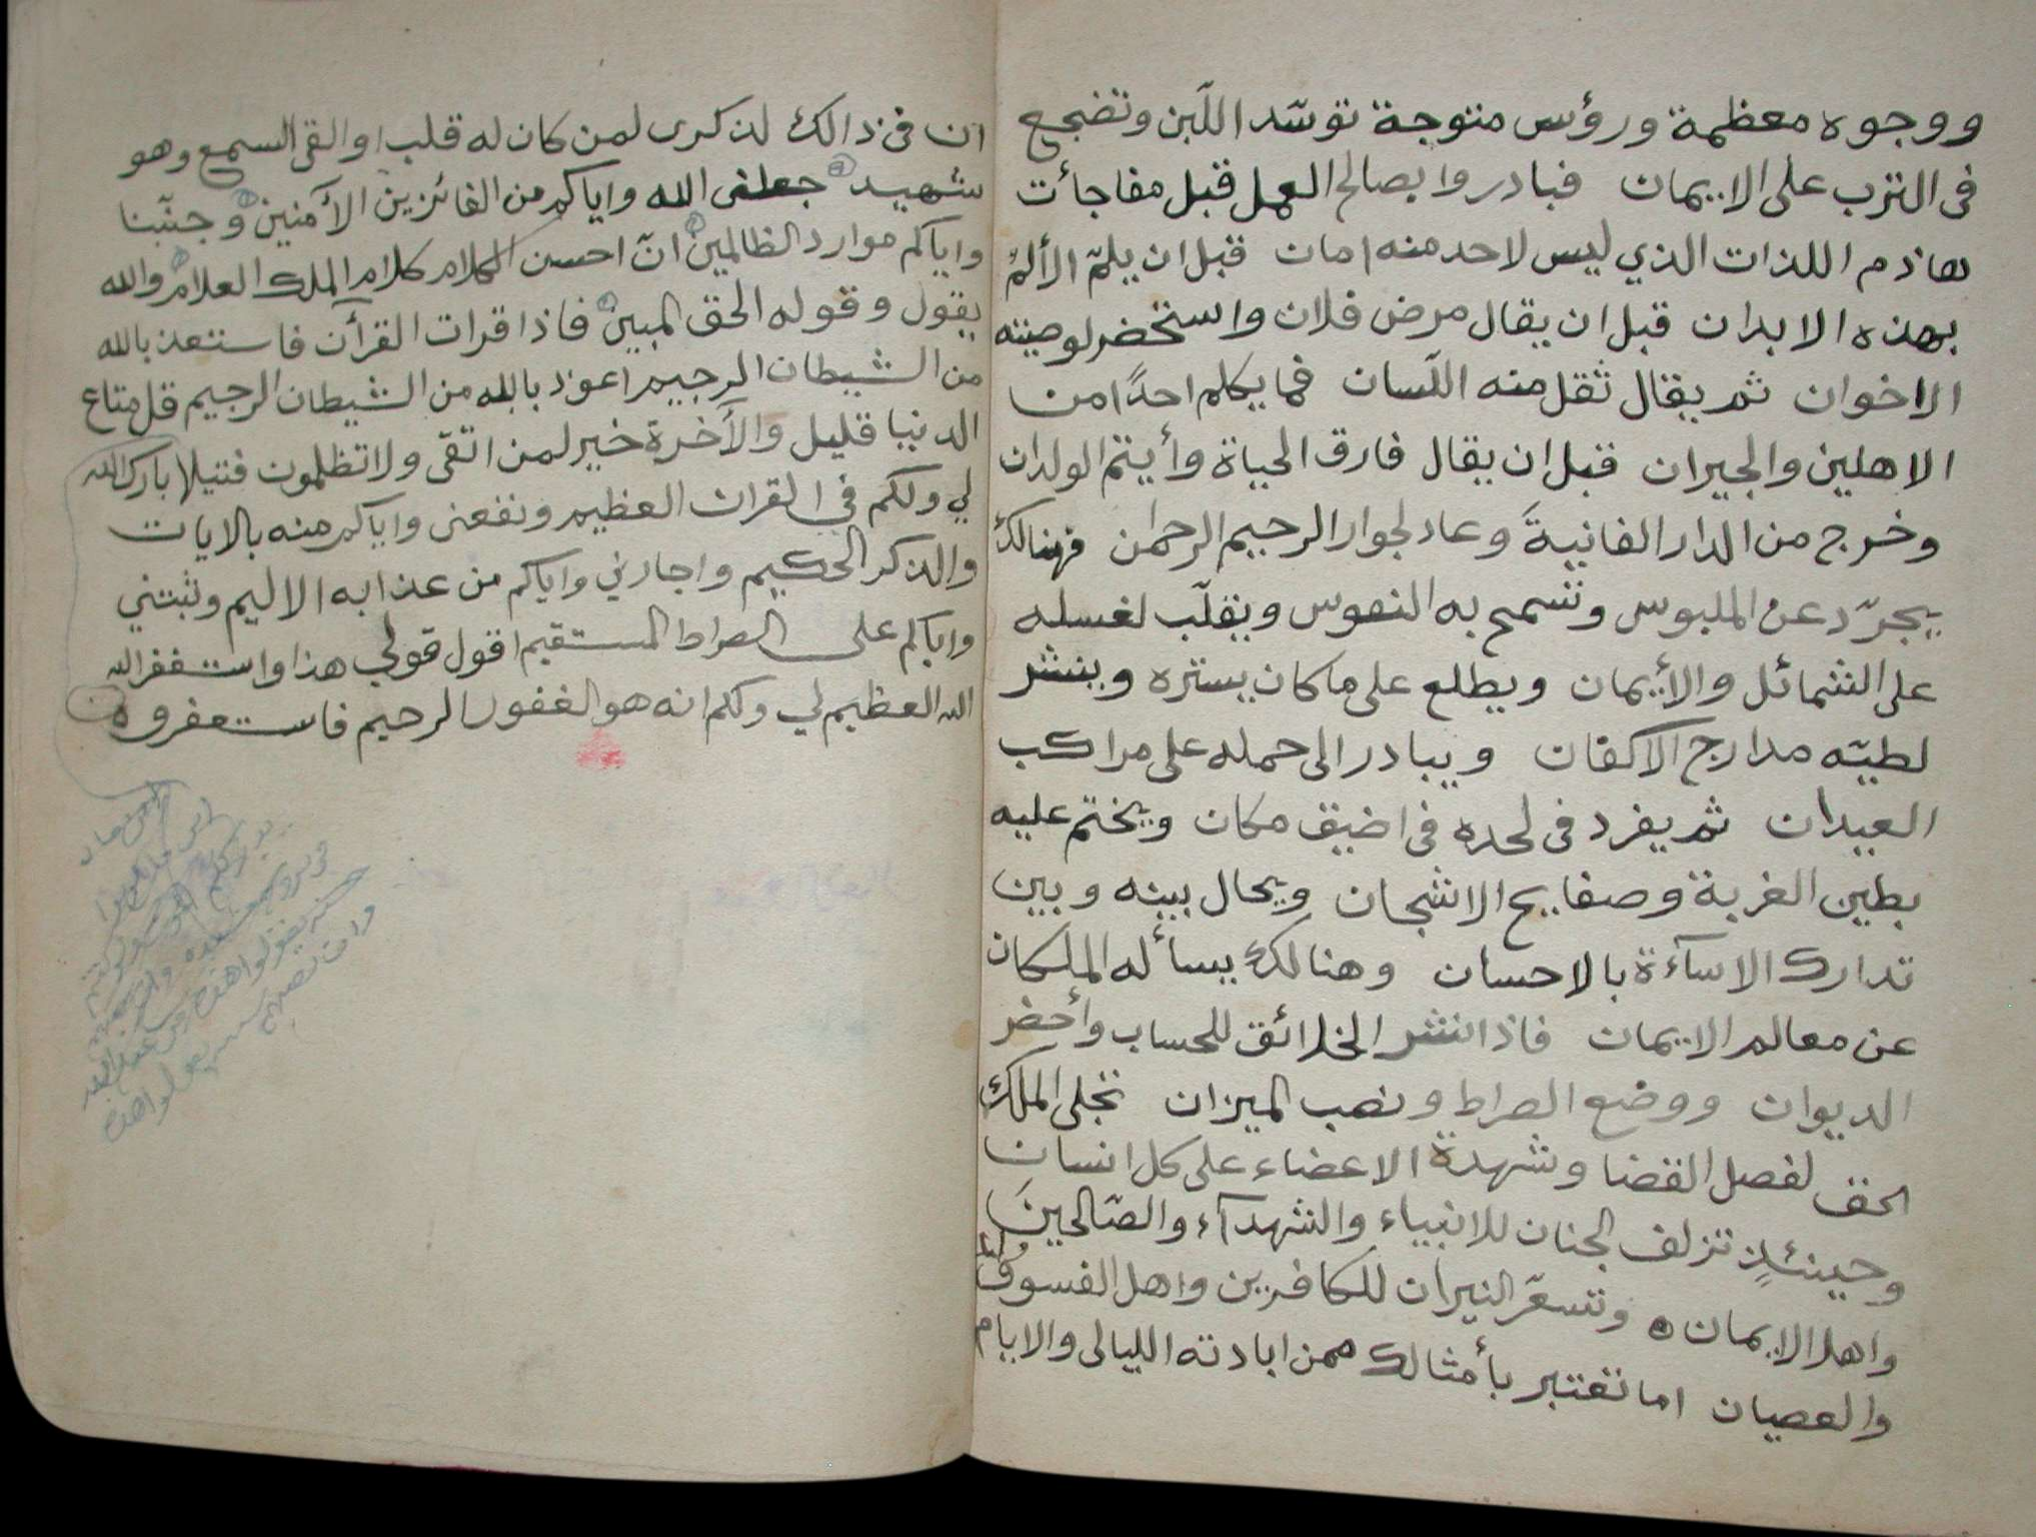 ووجوه معظمة ورؤس متوجة توسّد اللَبن وتضجع
فى الترب على الايمان فبادروا بصالح العمل قبل مفاجأت
هاذم اللذات الذي ليس لاحد منه امان قبل ان يلمّ الألمُ
بهذه الابدان قبل ان يقال مرض فلان واستحضر لوصيته
الاخوان ثم يقال ثقل منه اللسان فما يكلم احدًا من
الاهلين والجيران قبل ان يقال فارق الحياة وأيتم الولدان
وخرج من الدار الفانيةَ وعاد لجوار الرحيم الرحمن فهنالك
يجرّد عن الملبوس وتسمح به النفوس ويقلّب لغسله
على الشمائل والأيمان ويطلع على ما كان يستره وينشر
لطيّه مدارج الاكفان ويبادر الى حمله على مراكب
العيدان ثم يفرد فى لحده فى اضيق مكان ويختم عليه
بطين الغربة وصفايح الاشجان ويحال بينه وبين
تدارك الاسآءة بالاحسان وهنالك يسأله الملكان
عن معالم الايمان فاذا انتشر الخلائق للحساب وأحضر
الديوان ووضع الصراط ونصب الميزان تجلى الملك
الحق لفصل القضا وشهدة الاعضاء على كل انسان
وحينئذٍ تزلف الجنان للانبياء والشهدآء والصّالحينَ
واهل الايمان ه وتسعّر النيران للكافرين واهل الفسوق
والعصيان اما تعتبر بأمثالك ممن ابادته الليالى والايام
ان فى ذالك لذكرى لمن كان له قلب او القى السمع وهو
شهيد جعلنى الله واياكم من الفائزين الأمنين وجنّبنا
واياكم موارد الظالمين انّ احسن الكلام كلام الملك العلام والله
يقول وقوله الحق المبين فاذا قرات القرآن فاستعذ بالله
من الشيطان الرجيم اعوذ بالله من الشيطان الرجيم قل متاع
الدنيا قليل والآخرة خير لمن اتقى ولا تظلمون فتيلا بارك الله
لي ولكم في القران العظيم ونفعنى واياكم منه بالايات
والذكر الحكيم واجارني واياكم من عذابه الاليم وثبتني
واياكم على الصراط المستقيم اقول قولي هذا واستغفر الله
الله العظيم لي ولكم انه هو الغفور الرحيم فاستغفروه